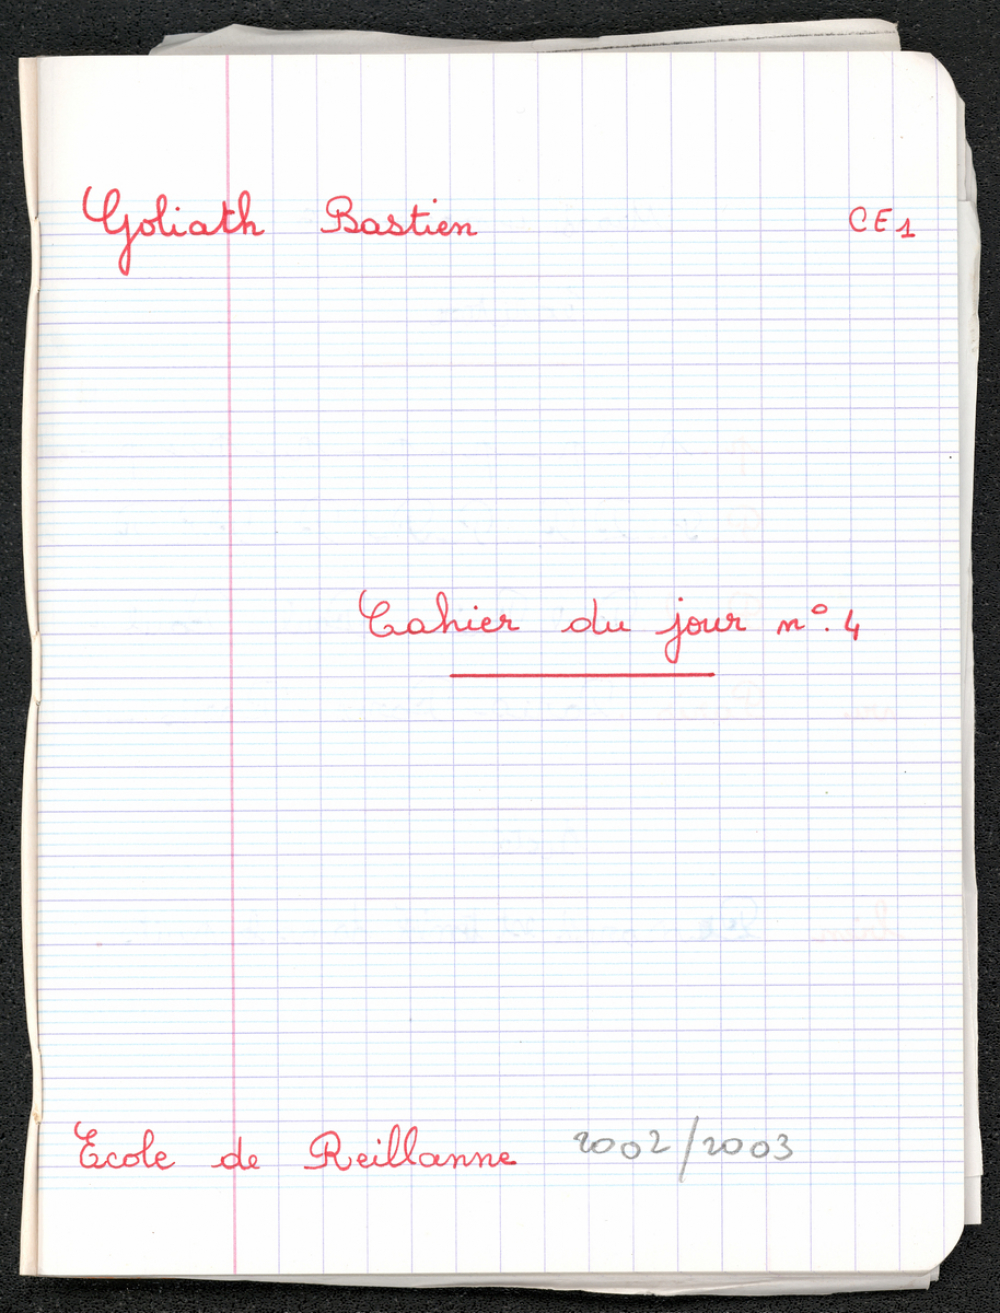 Goliath Bastien CE1
Cahier du jour n°. 4
Ecole de Reillanne 2002/2003